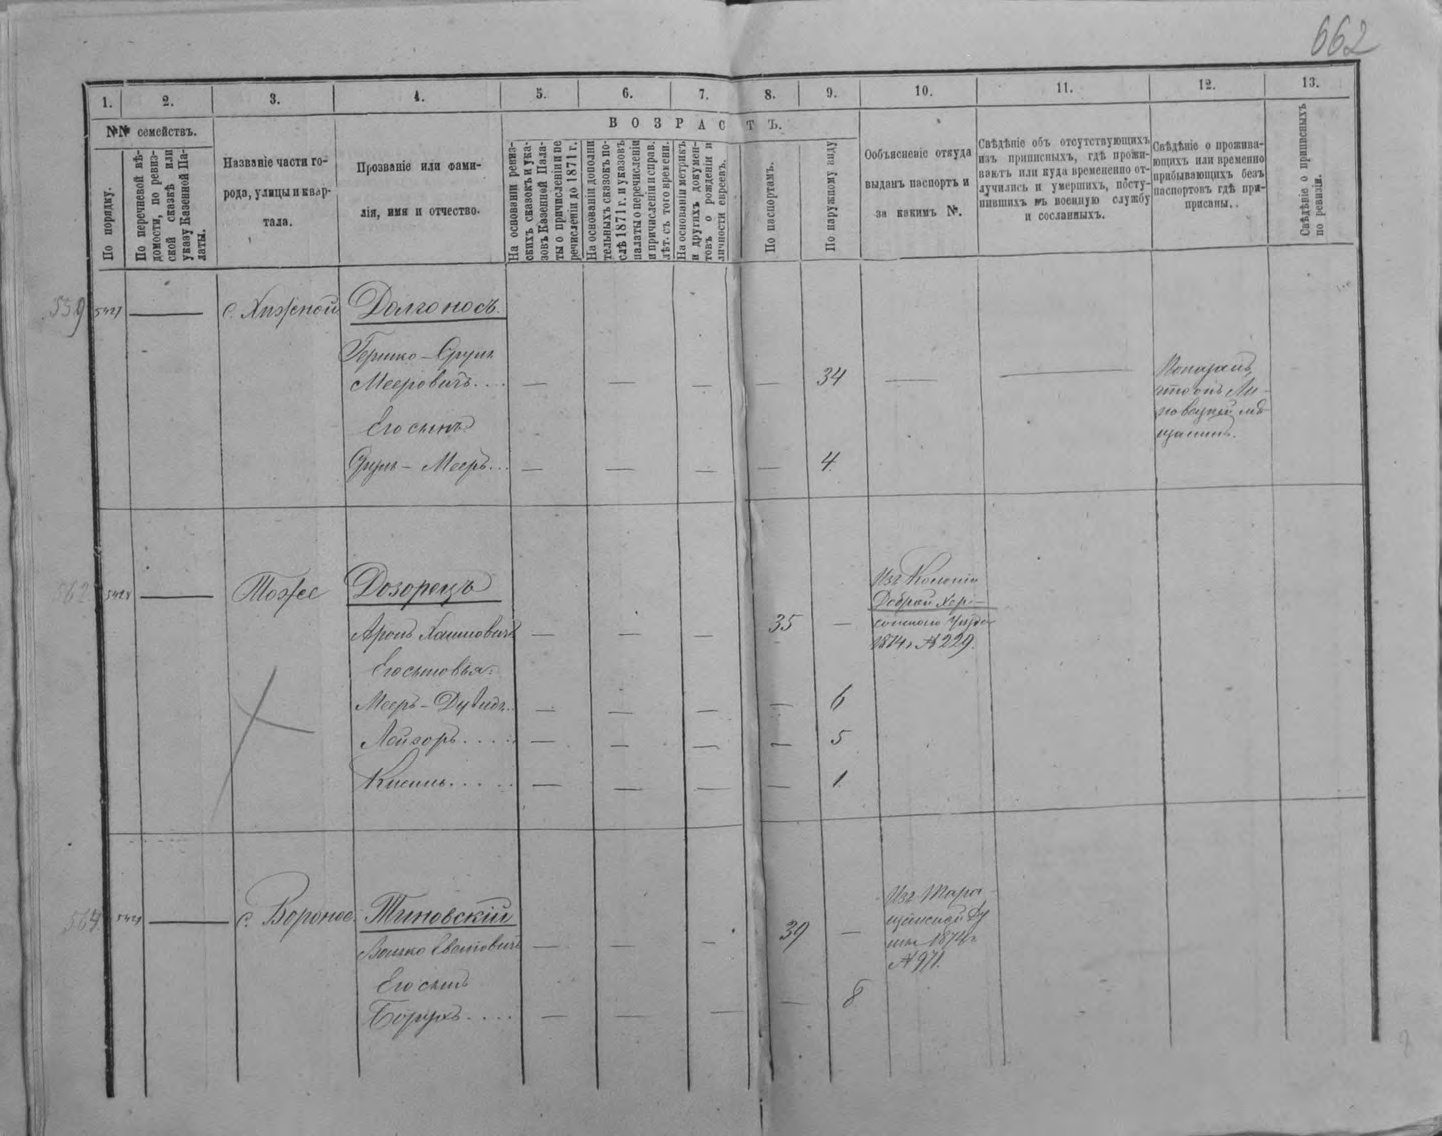 662
1. 2. 3. 4. 5. 6. 7. 8. 9. 10. 11. 12. 13.
№№ семействъ.
По порядку.
По перечневой вѣ-
домости, по ревиз-
ской сказкѣ или
указу Казенной Па-
латы.
Названіе части го-
рода, улицы и квар-
тала.
Прозваніе или фами-
лія, имя и отчество.
ВОЗРАСТЪ.
На основаніи ревиз-
скихъ сказокъ и ука-
зовъ Казенной Пала-
ты о причисленіи и пе
речисленіи до 1871 г.
На основаніи дополни
тельныхъ сказокъ по-
слѣ 1871 г. и указовъ
палаты о перечисленіи
и причисленіи и справ.
лѣт. съ того времени.
На основаніи метрикъ
и другихъ докумен-
товъ о рожденіи и
личности евреевъ.
По паспортамъ.
По наружному виду.
Ообъясненіе откуда
выданъ паспортъ и
за какимъ №.
Свѣдѣніе объ отсутствующихъ
изъ приписныхъ, гдѣ прожи-
ваютъ или куда временно от-
лучились и умершихъ, посту-
пившихъ въ военную службу
и сосланныхъ.
Свѣдѣніе о прожива-
ющихъ или временно
прибывающихъ безъ
паспортовъ гдѣ при-
писаны.
Свѣдѣніе о приписныхъ
по ревизіи.
559 5427 с. Хижной Долгоносъ
Гершко-Сруль
Мееровичъ 34
Показалъ,
что онъ Ли-
повецкий мѣ
щанинъ.
Его сынъ
Сруль-Мееръ 4
562 5428 Тоже Дозорецъ
Аронъ Хаимовичъ 35
Изъ Колоніи
Доброй Хер-
сонского Уезда
1874 г. № 229.
Его сыновья:
Мееръ-Дувидъ 6
Лейзоръ 5
Кисиль 1
564 5429 с. Вороное Тиновскій
39
Изъ Тара-
щанской Ду
мы 1874 г.
№ 971.
Его сынъ
Борухъ 8